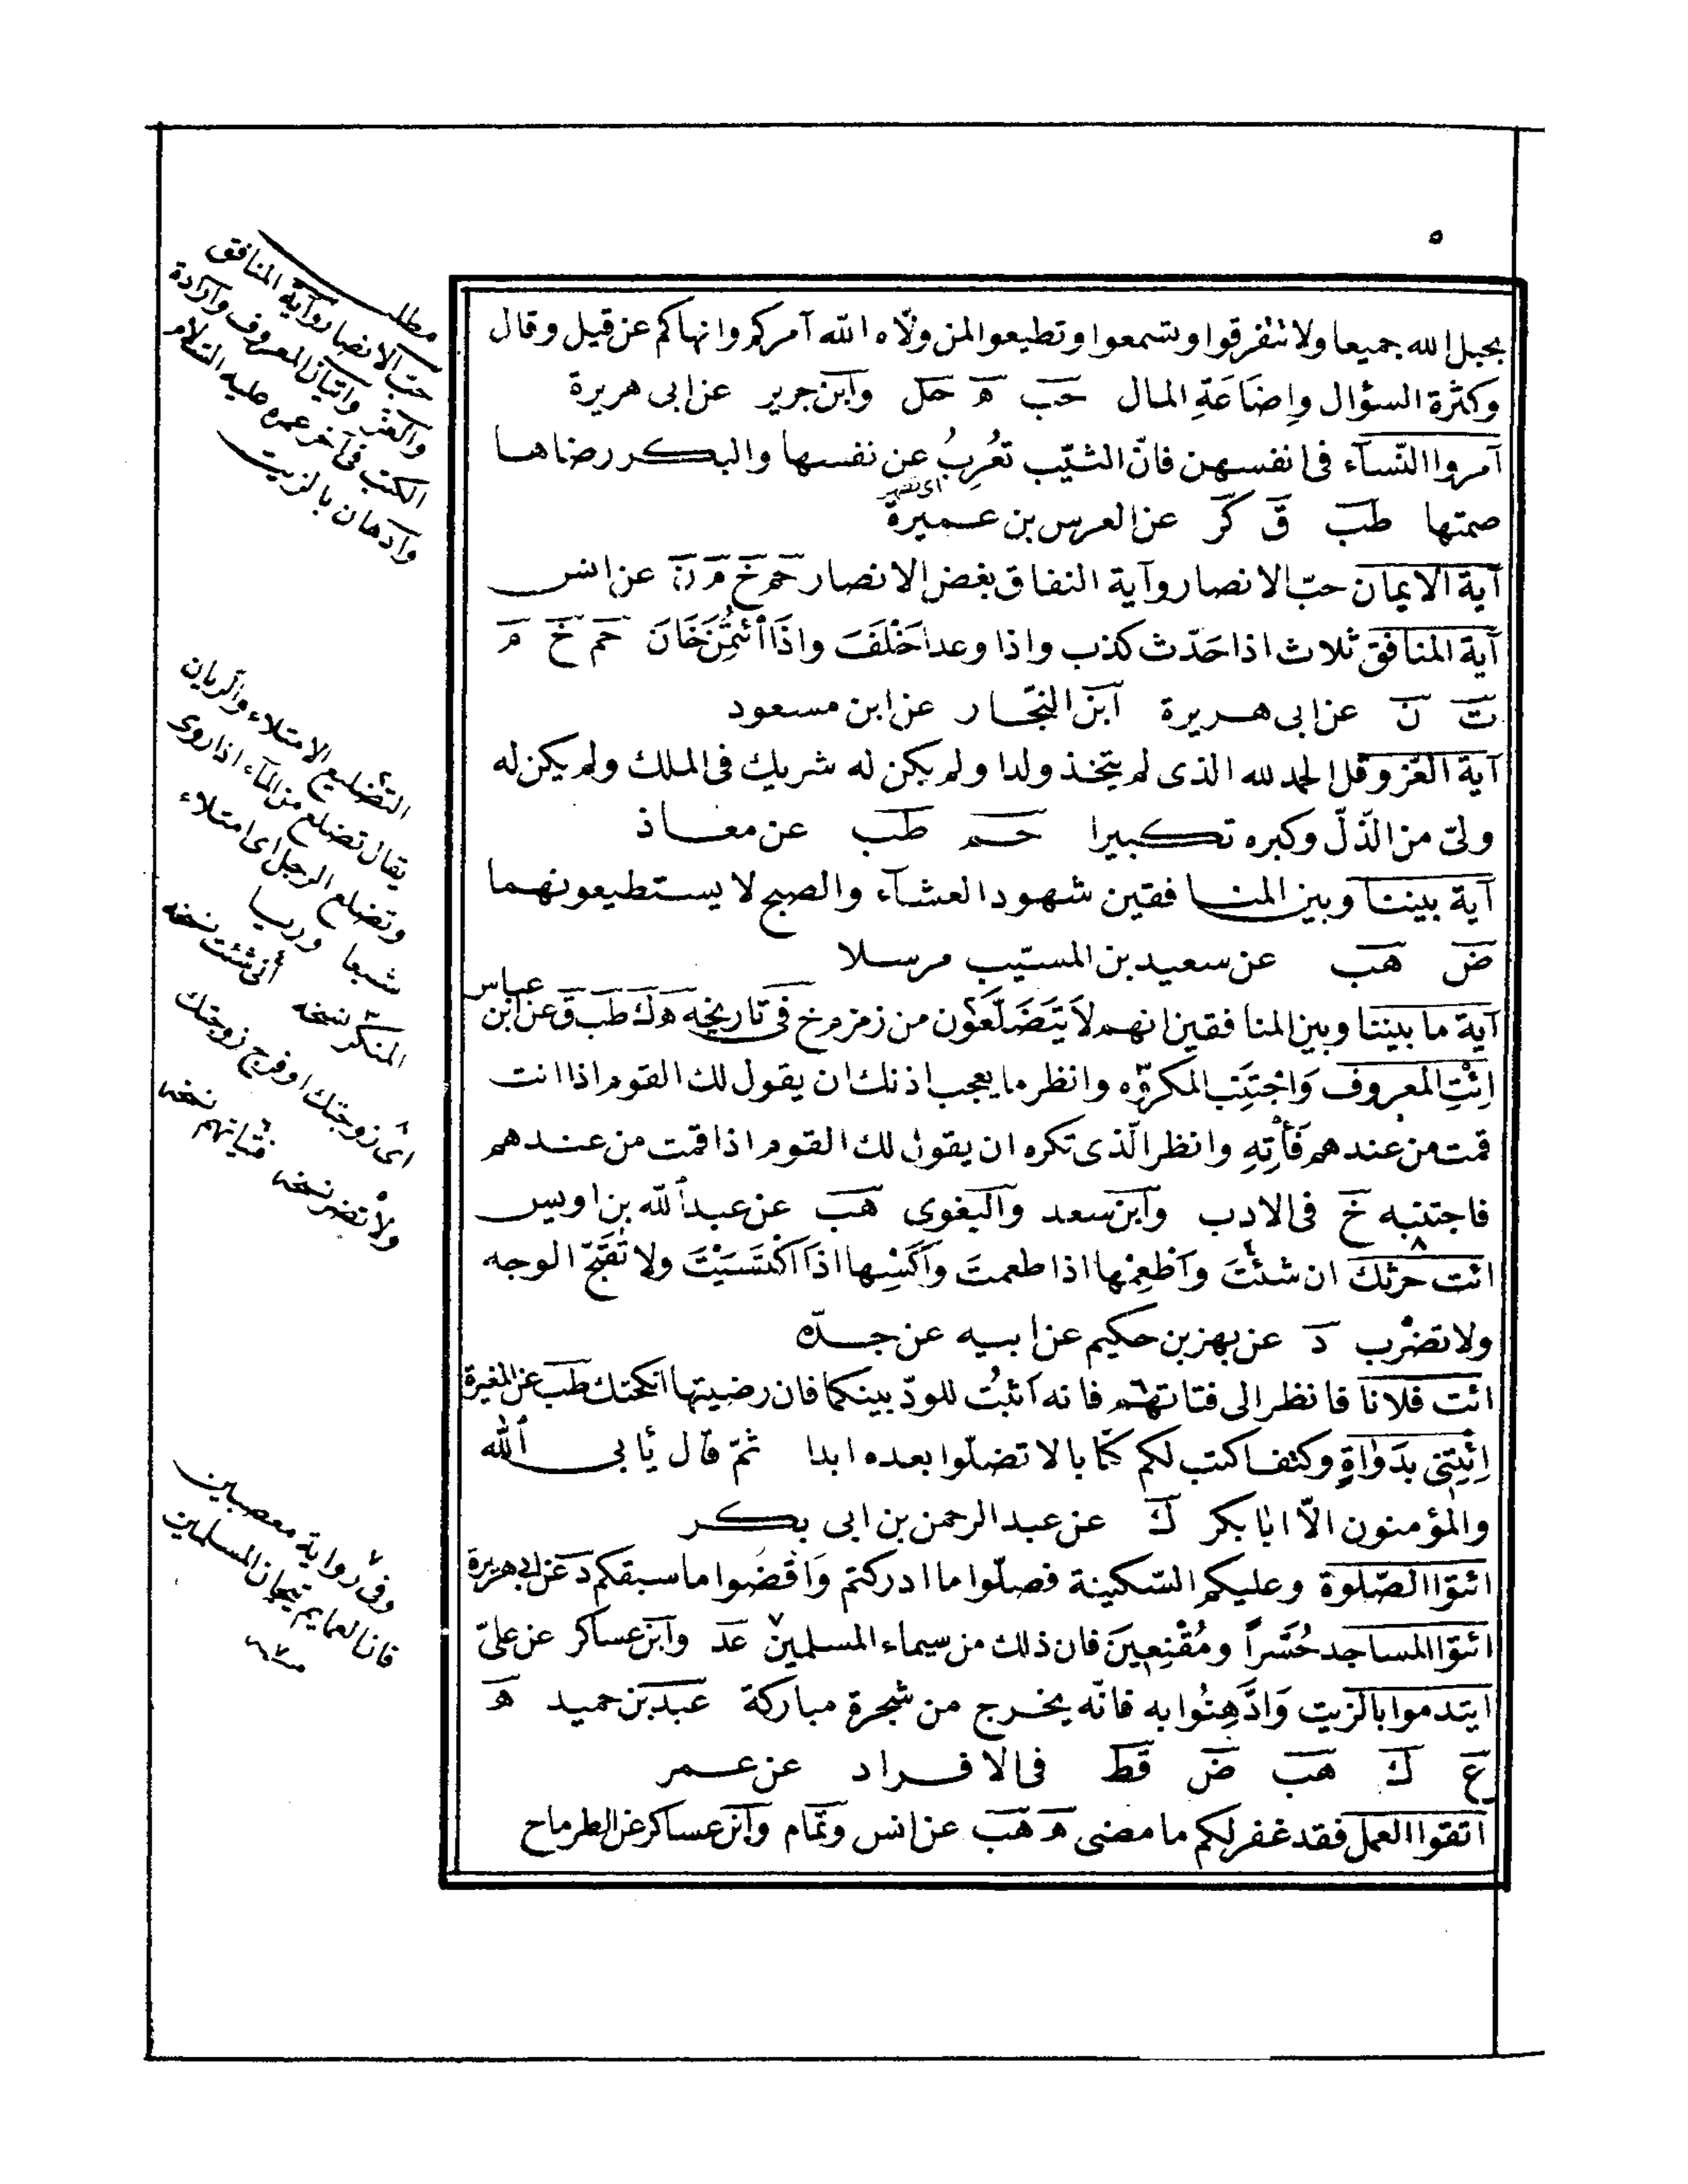 ٥
بحبل الله جميعا ولا تتفرقوا وتسمعوا وتطيعوا لمن ولّاه الله آمركم وانهاكم عن قيل وقال
وكثرة السؤال وإضَاعَةِ المال حب ه حل وابن جرير عن ابى هريرة
آمروا النّسآء فى انفسهن فانّ الثيّب تُعْرِبُ عن نفسها والبكر رضاها
صمتها طب ق كر عن العرس بن عميرة
آية الايمان حبّ الانصار وآية النفاق بغض الانصار حم خ م ن عن انس
آية المنافق ثلاث اذا حَدّث كذب واذا وعد اَخْلَفَ واذَا اْئتُمِنَ خَانَ حم خ م
ت ن عن ابى هريرة ابن النجّار عن ابن مسعود
آية العّز وقل الحمد لله الذى لم يتخذ ولدا ولم يكن له شريك فى الملك ولم يكن له
ولىّ من الذّلّ وكبره تكبيرا حم طب عن معاذ
آية بيننا وبين المنافقين شهود العشآء والصبح لا يستطيعونهما
ض هب عن سعيد بن المسيّب مرسلا
آية ما بيننا وبين المنافقين انهم لا يَتَضَلَّعُون من زمزم خ فى تاريخه ه ك طب ق عن ابن عباس
اِئْتِ المعروف وَاجْتَنِب المكرّه وانظر ما يعجب اذنك ان يقول لك القوم اذا انت
قمت من عندهم فَأْتِهِ وانظر الّذى تكره ان يقول لك القوم اذا قمت من عندهم
فاجتنبه خ فى الادب وابن سعد والبغوى هب عن عبد الله بن اويس
ائت حرثك ان شئتَ وَاَطْعِمْها اذا طعمتَ وَاَكْسِها اذَا اكْتَسَيْتَ ولا تُقَبّح الوجه
ولا تضرب د عن بهز بن حكيم عن ابيه عن جدّه
ائت فلانا فانظر الى فتاتهم فانه اَثبتُ للودّ بينكما فان رضيتها انكحتك طب عن المغيرة
اِئْتِنى بدَوَاةٍ وكتف اكتب لكم كتابا لا تضلّوا بعده ابدا ثمّ قال يأبى الله
والمؤمنون الاّ ابا بكر ك عن عبد الرحمن بن ابى بكر
ائتوا الصّلوة وعليكم السّكينة فصلّوا ما ادركتم وَاقْضُوا ما سبقكم د عن ابى هريرة
ائتوا المساجد حُسَّراً ومُقَنِعِينَ فان ذلك من سيماء المسلمين عد وابن عساكر عن علىّ
ايتدموا بالزيت وَادَّهِنُوا به فانّه يخرج من شجرة مباركة عبد بن حميد ه
ع ك هب ض قط فى الافراد عن عمر
ائتقوا العمل فقد غفر لكم ما مضى ه هب عن انس وتمّام وابن عساكر عن الطرماح
اى تظهر
مطلب
حبّ الانصار وآية المنافق
والعزّ واتيان المعروف وارادة
الكتب فى آخر عمره عليه السّلام
وادهان بالزيت
التضليع الامتلاء والرّيان
يقال تضلع من المآء اذا روى
وتضلع الرجل اى امتلاء
شبعا وريا
المنكر نسخه أنى شئت نسخه
اى زوجتك او فرج زوجتك
ولا تضر نسخه فتياتهم نسخه
وفى رواية معصبين
فان العمايم تيجان المسلمين